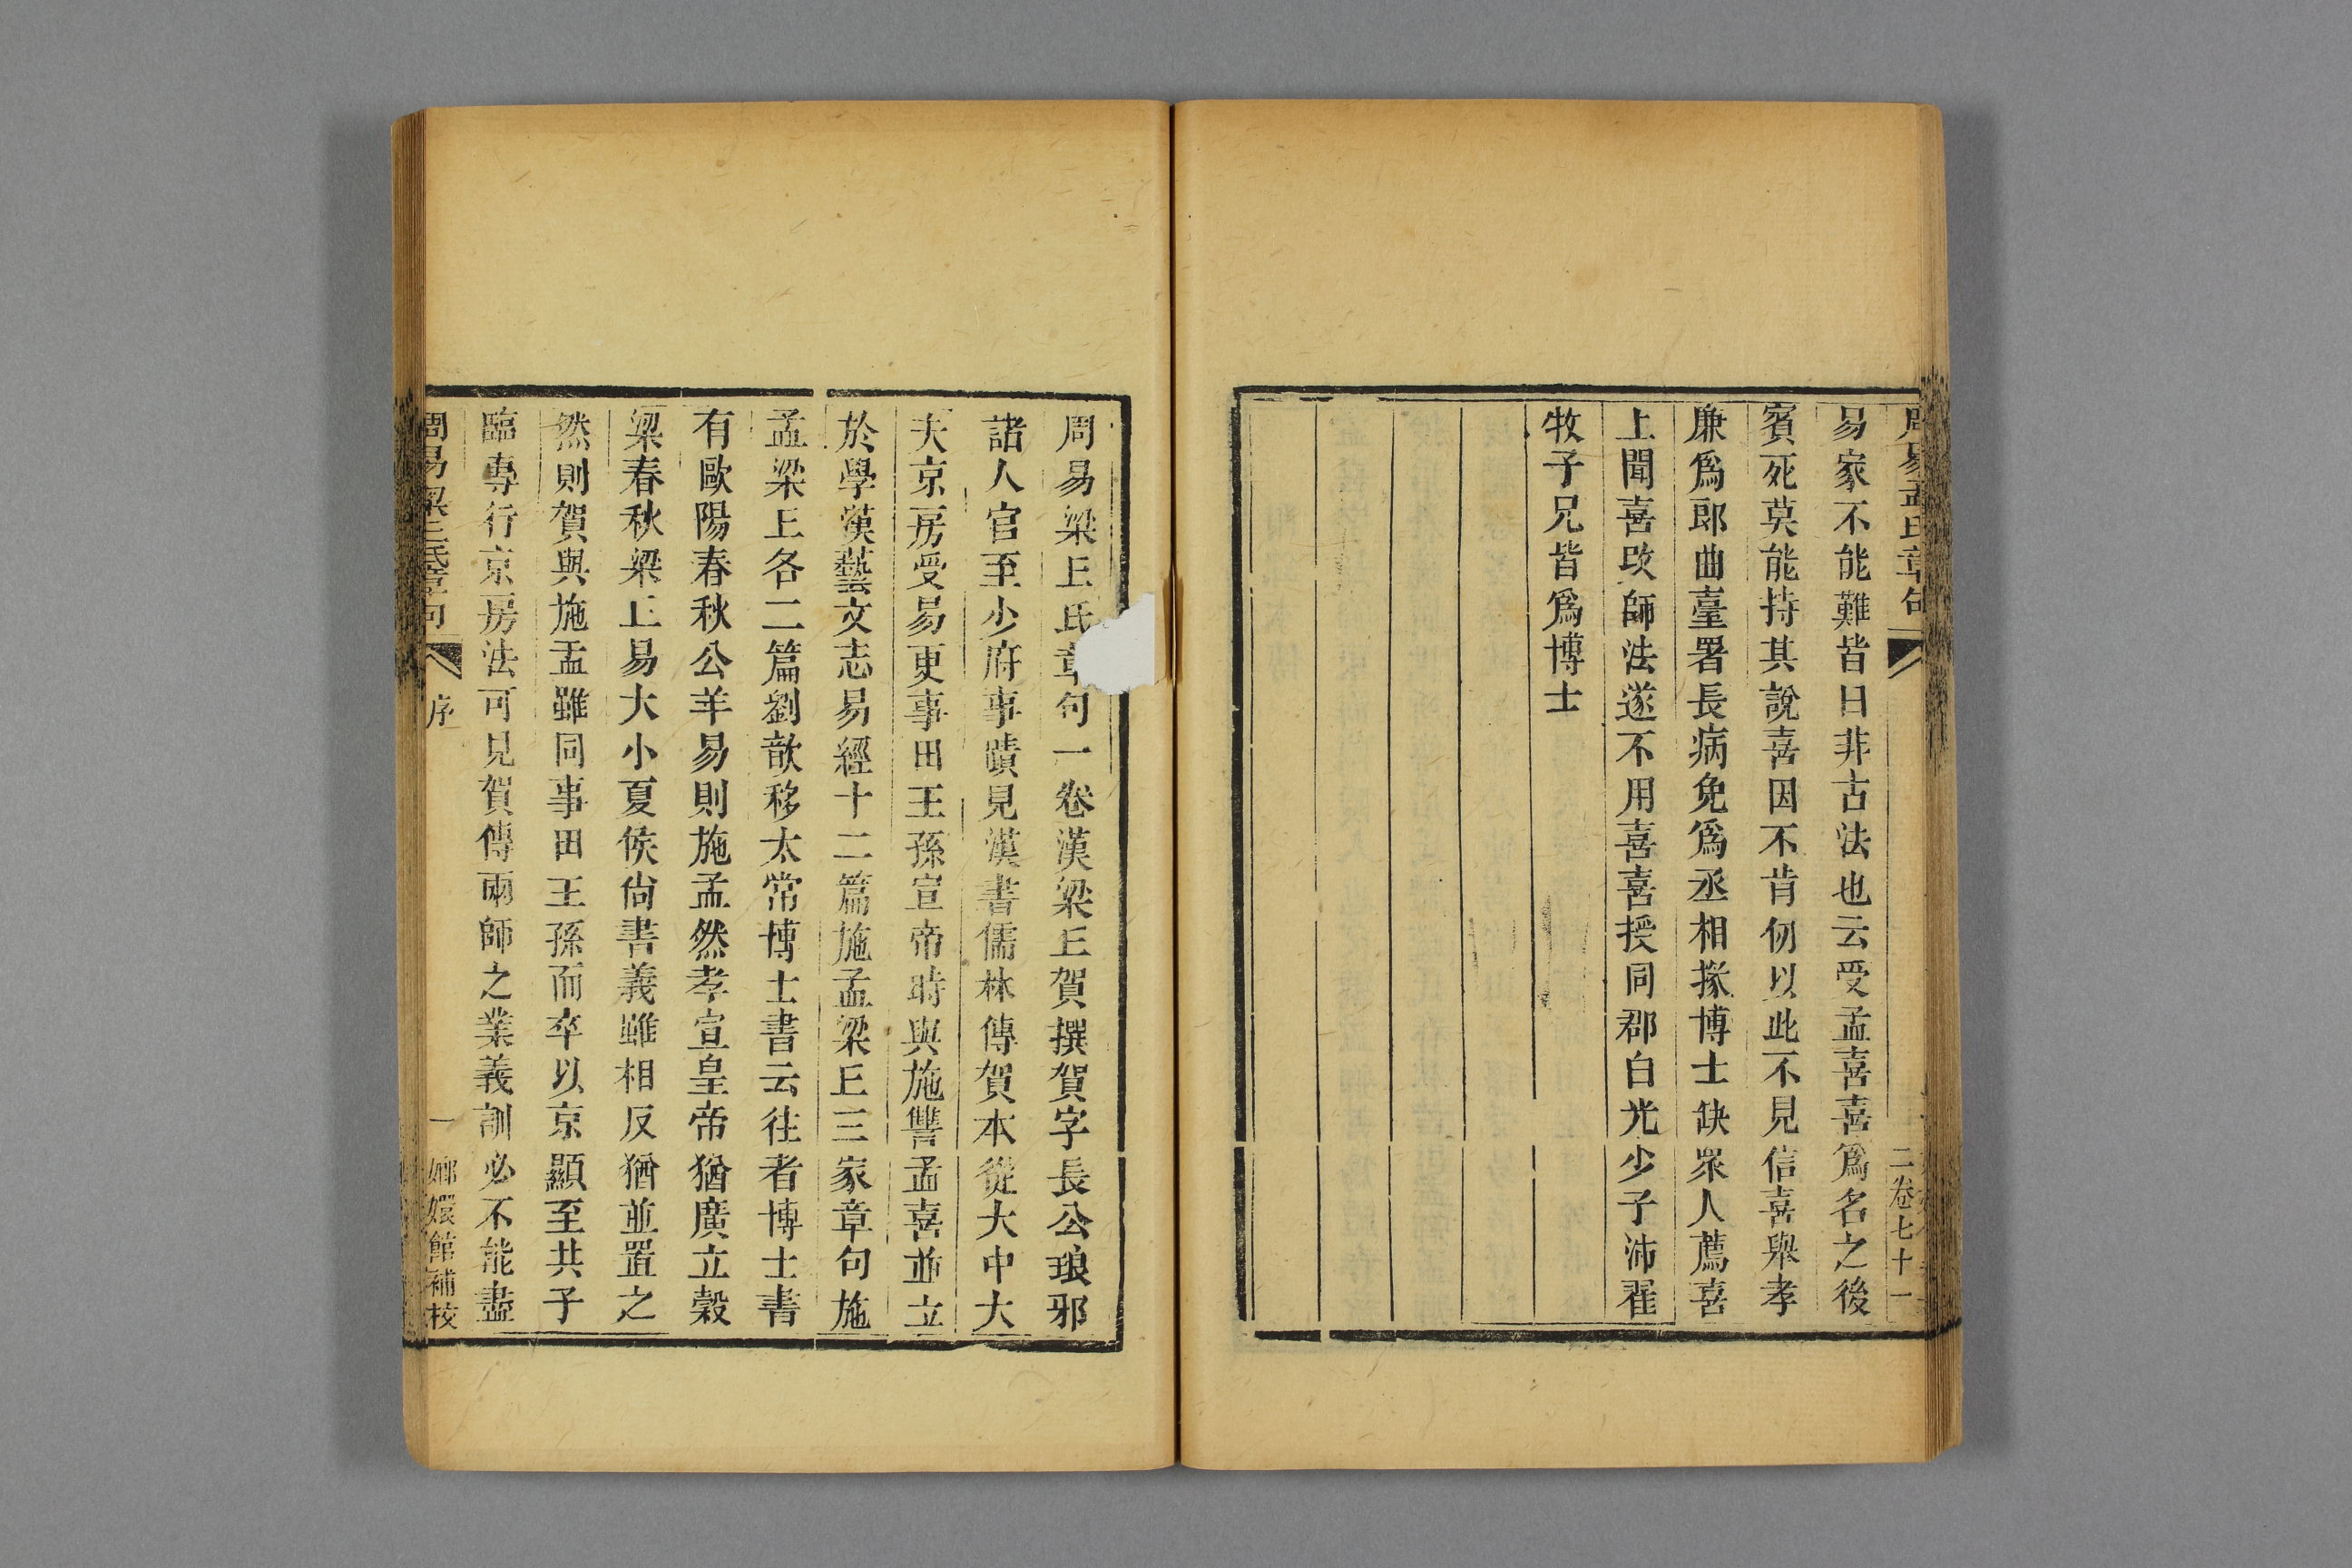 周易孟氏章句
二卷七十一
易家不能難皆曰非古法也云受孟喜喜爲名之後
賓死莫能持其說喜因不肯仞以此不見信喜舉孝
廉爲郎曲臺署長病免爲丞相掾博士缺眾人薦喜
上聞喜改師法遂不用喜喜授同郡白光少子沛翟
牧子兄皆爲博士
周易梁丘氏章句一卷漢梁丘賀撰賀字長公琅邪
諸人官至少府事蹟見漢書儒林傳賀本從大中大
夫京房受易更事田王孫宣帝時與施讐孟喜並立
於學漢藝文志易經十二篇施孟梁丘三家章句施
孟梁丘各二篇劉歆移太常博士書云往者博士書
有歐陽春秋公羊易則施孟然孝宣皇帝猶廣立穀
梁春秋梁丘易大小夏侯尙書義雖相反猶並置之
然則賀與施孟雖同事田王孫而卒以京顯至共子
臨專行京房法可見賀傳兩師之業義訓必不能盡
周易梁丘氏章句
序
一
嫏嬛館補校